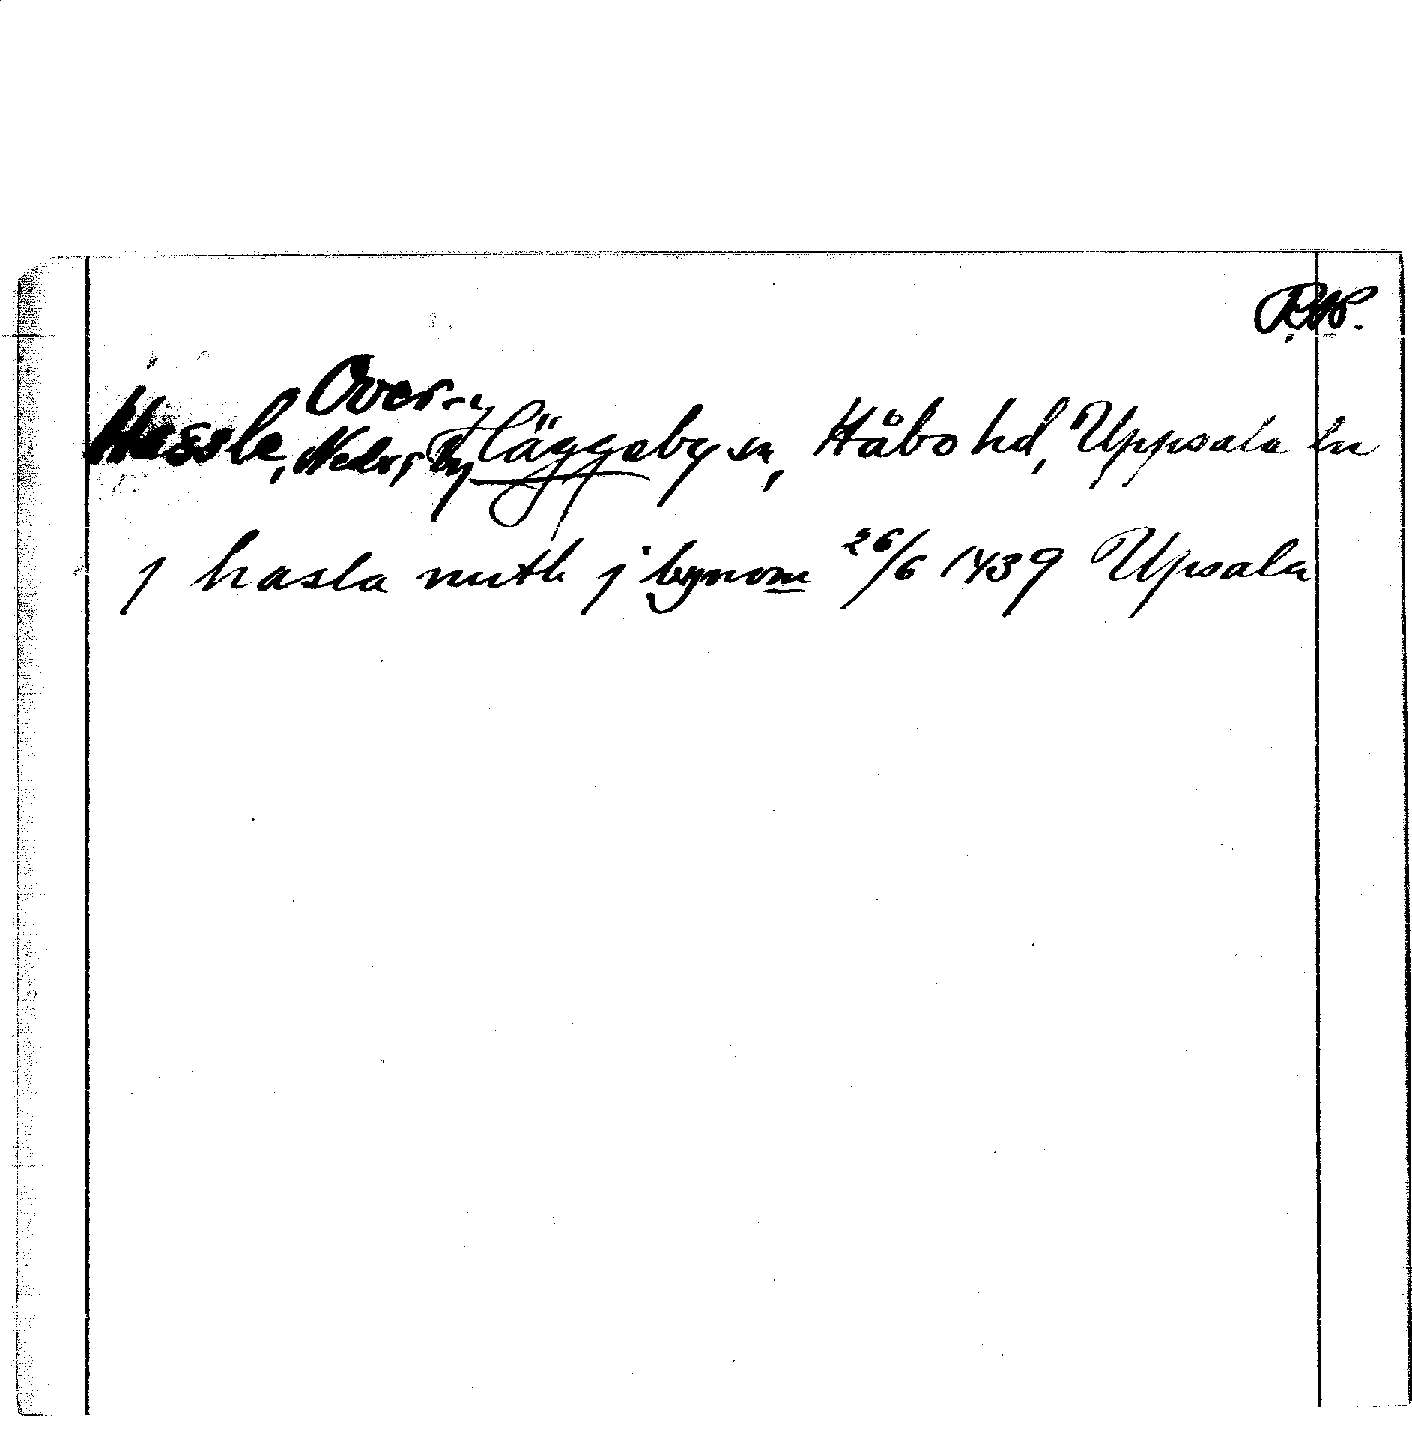 Över-,
Hassle, Neder, by Häggeby sn, Håbo hd, Uppsala län
j hasla mith j bynom 26/6 1439 Upsala